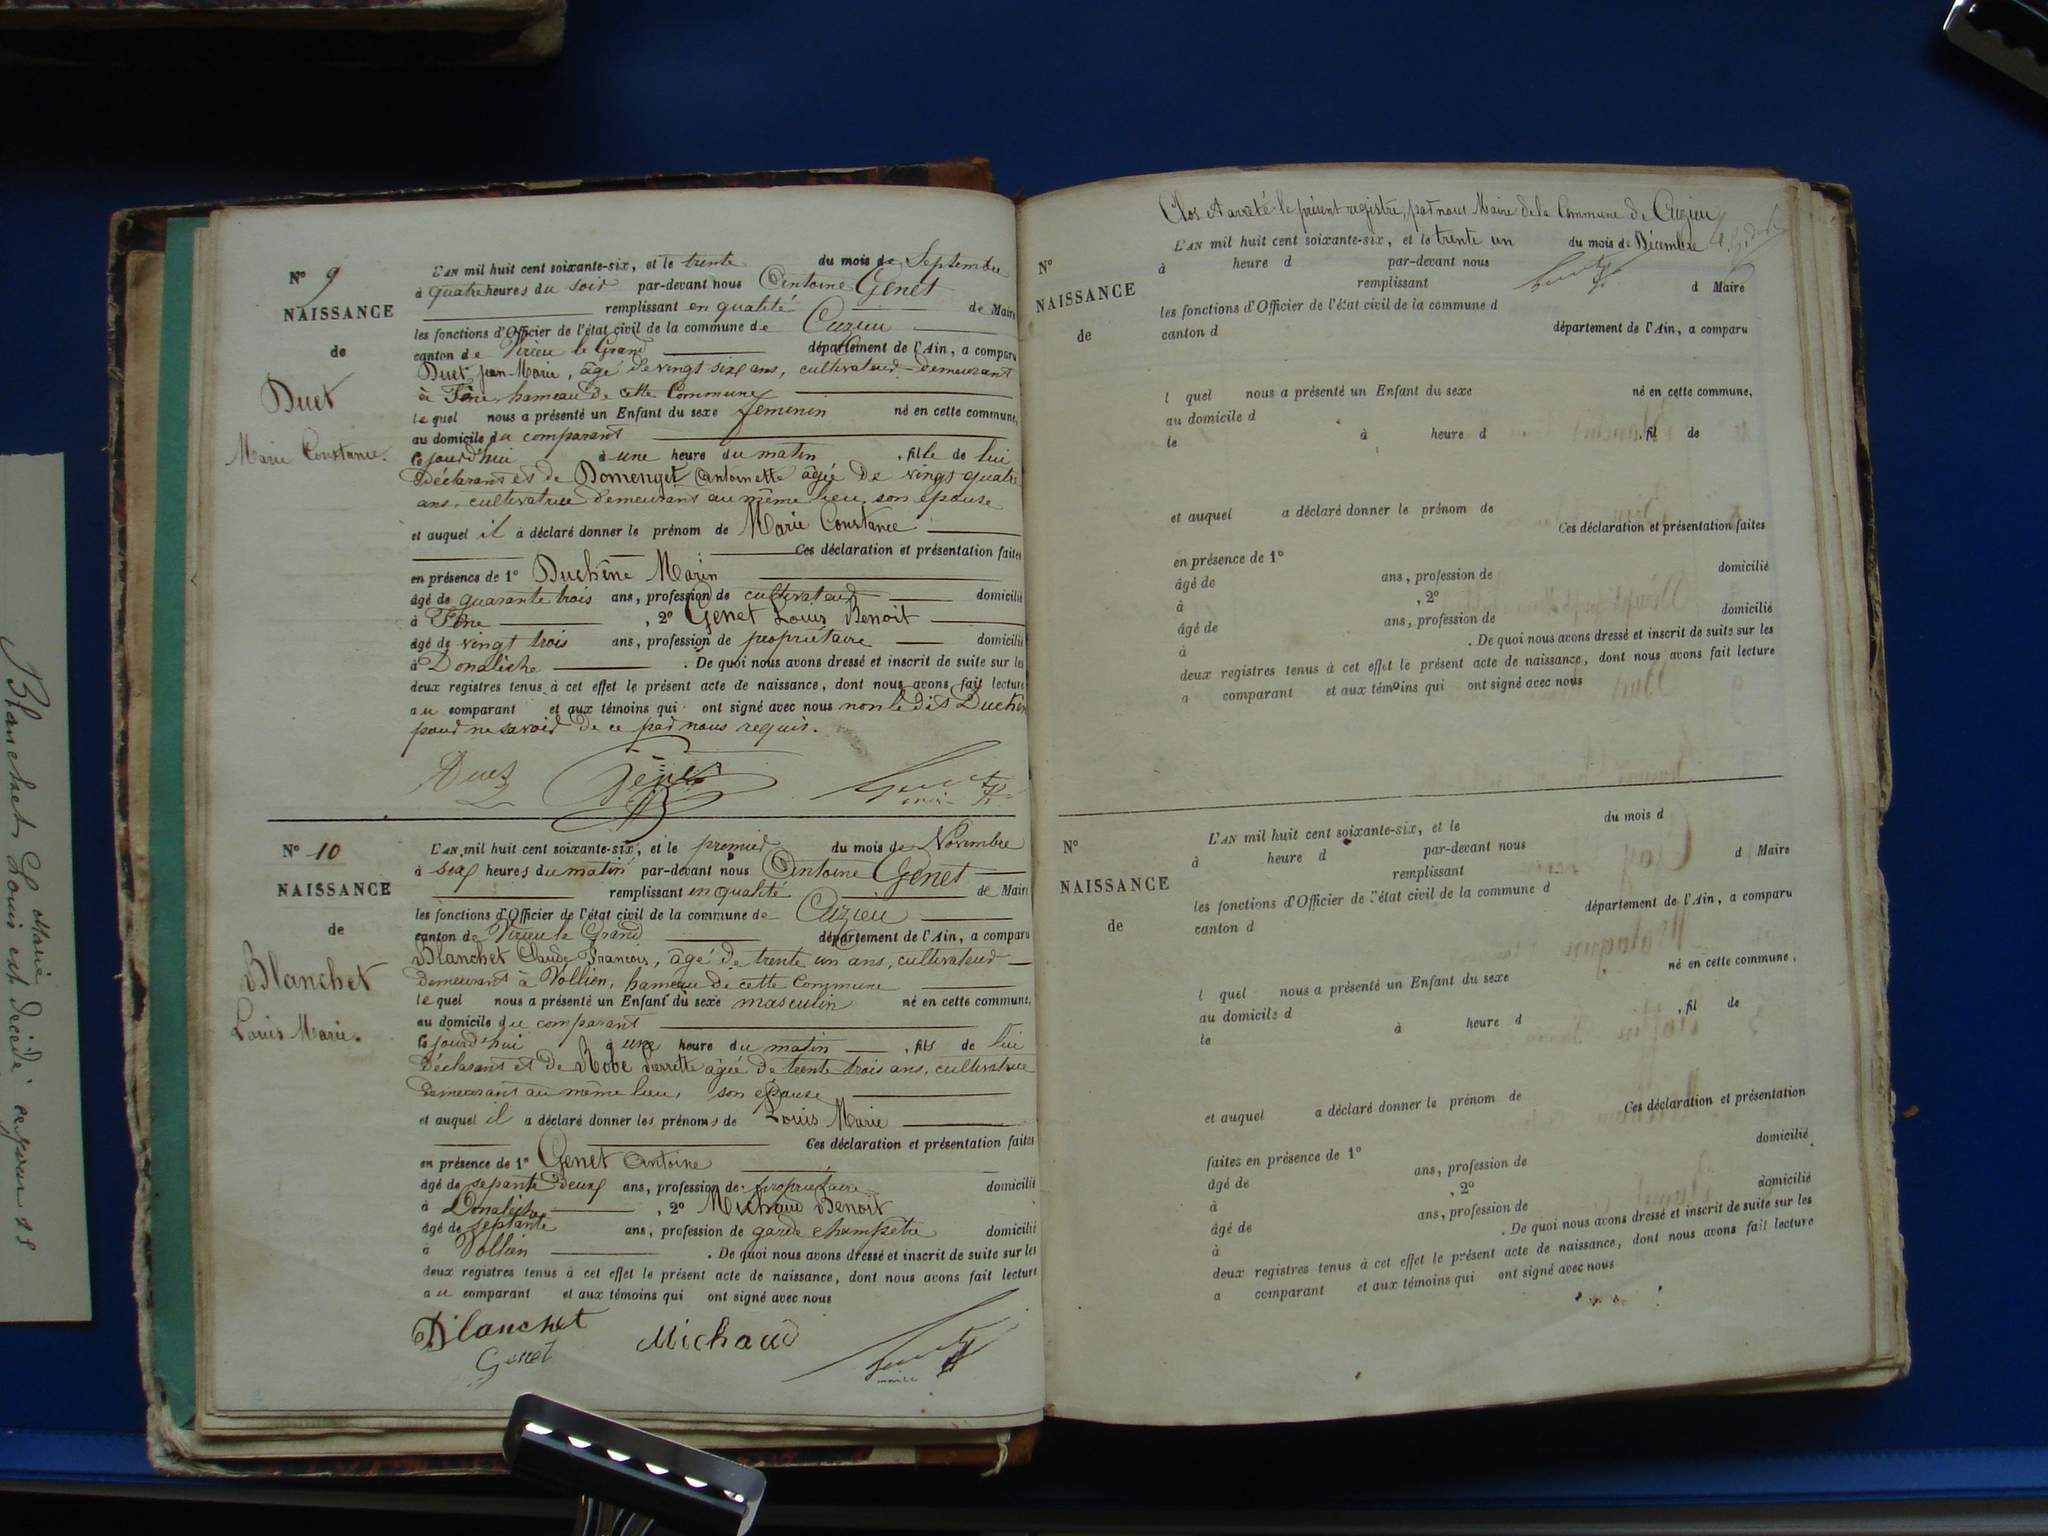 N° 9
NAISSANCE
de
Duet
Marie Constance.
L'AN mil huit cent soixante-six, et le trente du mois de Septembre
à quatre heures du soir par-devant nous Antoine Genet
remplissant en qualité de Maire
les fonctions d'Officier de l'état civil de la commune de Cuzieu
canton de Virieu le Grand département de l'Ain, a comparu
Duet Jean-Marie, âgé de vingt six ans, cultivateur demeurant
à hameau de cette Commune
le quel nous a présenté un Enfant du sexe feminin né en cette commune,
au domicile du comparant
ce jourd'hui à une heure du matin, fille de lui
Déclarant et de Domenget Antoinette âgée de vingt quatre
ans, cultivatrice demeurant au même lieu, son épouse
et auquel il a déclaré donner le prénom de Marie Constance
Ces déclaration et présentation faites
en présence de 1° Duchêne Marin
âgé de quarante trois ans, profession de cultivateur domicilié
à , 2° Genet Louis Benoit
âgé de vingt trois ans, profession de propriétaire domicilié
à Donalèche . De quoi nous avons dressé et inscrit de suite sur les
deux registres tenus à cet effet le présent acte de naissance, dont nous avons fait lecture
au comparant et aux témoins qui ont signé avec nous non le dit Duchêne
pour ne savoir de ce par nous requis.
Duet Genet
maire
N° 10
NAISSANCE
de
Blanchet
Louis Marie.
L'AN mil huit cent soixante-six, et le premier du mois de Novembre
à six heures du matin par-devant nous Antoine Genet
remplissant en qualité de Maire
les fonctions d'Officier de l'état civil de la commune de Cuzieu
canton de Virieu le Grand département de l'Ain, a comparu
Blanchet Claude François, âgé de trente un ans, cultivateur
demeurant à Vollien, hameau de cette Commune
le quel nous a présenté un Enfant du sexe masculin né en cette commune,
au domicile du comparant
ce jourd'hui à une heure du matin, fils de lui
Déclarant et de Robe Pierrette âgée de trente trois ans, cultivatrice
demeurant au même lieu, son épouse
et auquel il a déclaré donner les prénoms de Louis Marie
Ces déclaration et présentation faites
en présence de 1° Genet Antoine
âgé de septante deux ans, profession de propriétaire domicilié
à Donalèche , 2° Michaud Benoit
âgé de septante ans, profession de garde champêtre domicilié
à Vollien . De quoi nous avons dressé et inscrit de suite sur les
deux registres tenus à cet effet le présent acte de naissance, dont nous avons fait lecture
au comparant et aux témoins qui ont signé avec nous
Blanchet Michaud
Genet
maire
Clos et arrêté le présent registre, par nous Maire de la Commune de Cuzieu
N°
NAISSANCE
de
L'AN mil huit cent soixante-six, et le trente un du mois de Décembre
à heure d par-devant nous
remplissant d Maire
les fonctions d'Officier de l'état civil de la commune d
canton d département de l'Ain, a comparu
l quel nous a présenté un Enfant du sexe né en cette commune,
au domicile d
le à heure d , fil de
et auquel a déclaré donner le prénom de
Ces déclaration et présentation faites
en présence de 1°
âgé de ans, profession de domicilié
à , 2°
âgé de ans, profession de domicilié
à . De quoi nous avons dressé et inscrit de suite sur les
deux registres tenus à cet effet le présent acte de naissance, dont nous avons fait lecture
a comparant et aux témoins qui ont signé avec nous
N°
NAISSANCE
de
L'AN mil huit cent soixante-six, et le du mois d
à heure d par-devant nous
remplissant d Maire
les fonctions d'Officier de l'état civil de la commune d
canton d département de l'Ain, a comparu
l quel nous a présenté un Enfant du sexe né en cette commune,
au domicile d
le à heure d , fil de
et auquel a déclaré donner le prénom de
Ces déclaration et présentation
faites en présence de 1°
âgé de ans, profession de domicilié
à , 2°
âgé de ans, profession de domicilié
à . De quoi nous avons dressé et inscrit de suite sur les
deux registres tenus à cet effet le présent acte de naissance, dont nous avons fait lecture
a comparant et aux témoins qui ont signé avec nous
Marie
Blanchet Louis est décédé